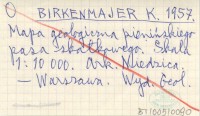 O BIRKENMAJER K. 1957.
Mapa geologiczna pienińskiego
pasa skałkowego. Skala
1:10 000. Ark. Niedzica.
— Warszawa. Wyd. Geol.
B1100510090